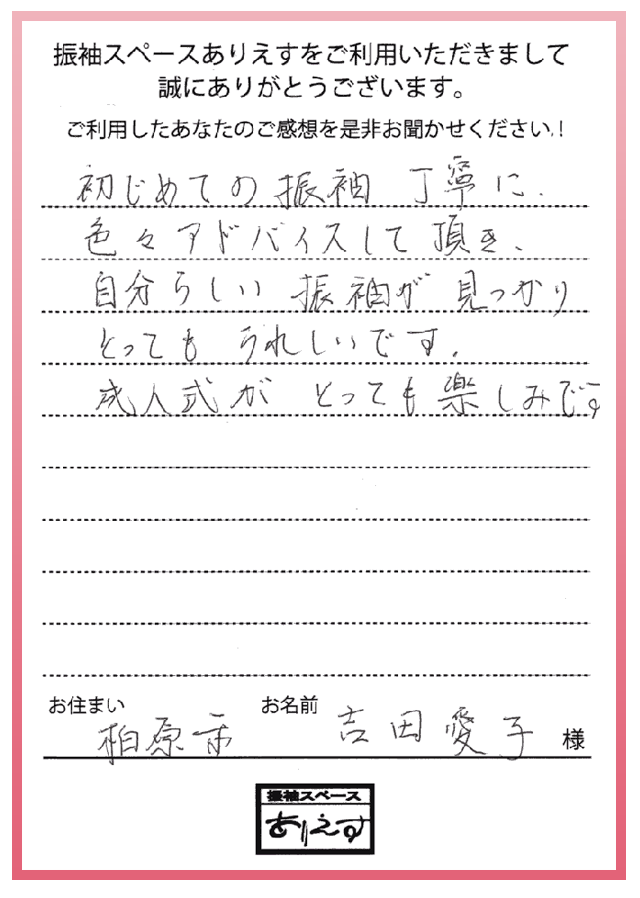 振袖スペースありえすをご利用いただきまして
誠にありがとうございます。
ご利用したあなたのご感想を是非お聞かせください！
初じめての振袖 丁寧に、
色々アドバイスして頂き、
自分らしい 振袖が 見つかり
とっても うれしいです。
成人式が とっても楽しみです
お住まい 柏原市 お名前 吉田愛子 様
振袖スペース
ありえす